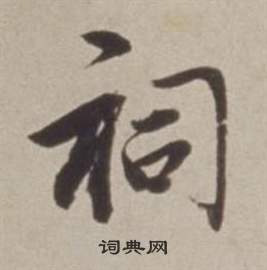 祠
词典网